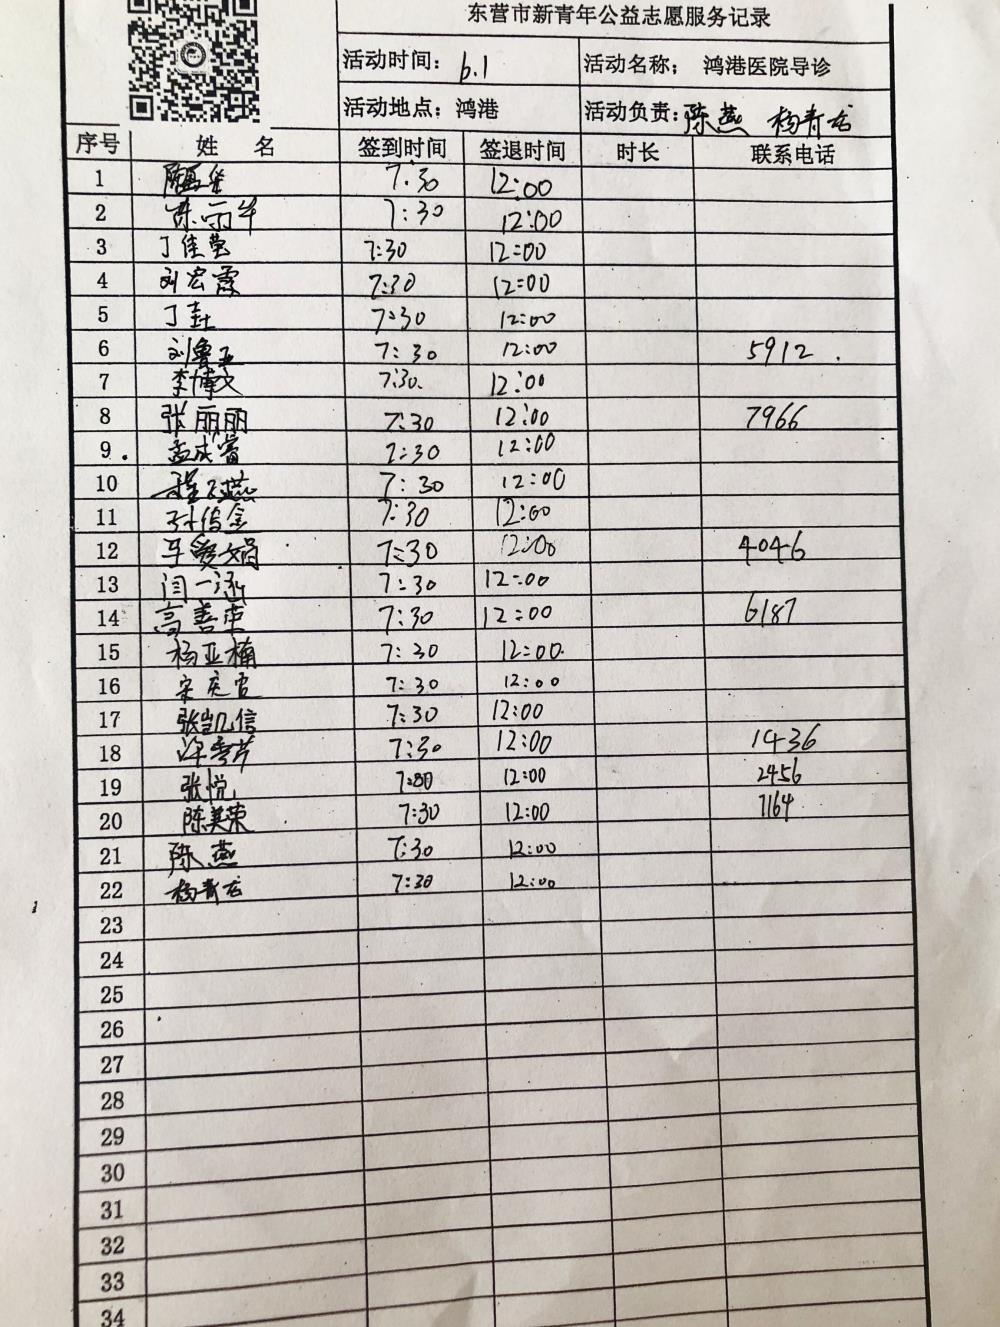 东营市新青年公益志愿服务记录
活动时间: 6.1 活动名称; 鸿港医院导诊
活动地点: 鸿港 活动负责: 陈燕 杨青龙
序号 姓 名 签到时间 签退时间 时长 联系电话
1 7:30 12:00
2 7:30 12:00
3 丁佳莹 7:30 12:00
4 刘宏霖 7:30 12:00
5 丁 7:30 12:00
6 刘鲁玉 7:30 12:00 5912
7 李博文 7:30 12:00
8 张丽丽 7:30 12:00 7966
9 孟成睿 7:30 12:00
10 7:30 12:00
11 7:30 12:00
12 7:30 12:00 4046
13 闫一涵 7:30 12:00
14 高善 7:30 12:00 6187
15 杨亚楠 7:30 12:00
16 宋庆 7:30 12:00
17 张凯信 7:30 12:00
18 7:30 12:00 1436
19 张悦 7:00 12:00 2456
20 陈美荣 7:30 12:00 7164
21 陈燕 7:30 12:00
22 杨青龙 7:30 12:00
23
24
25
26
27
28
29
30
31
32
33
34